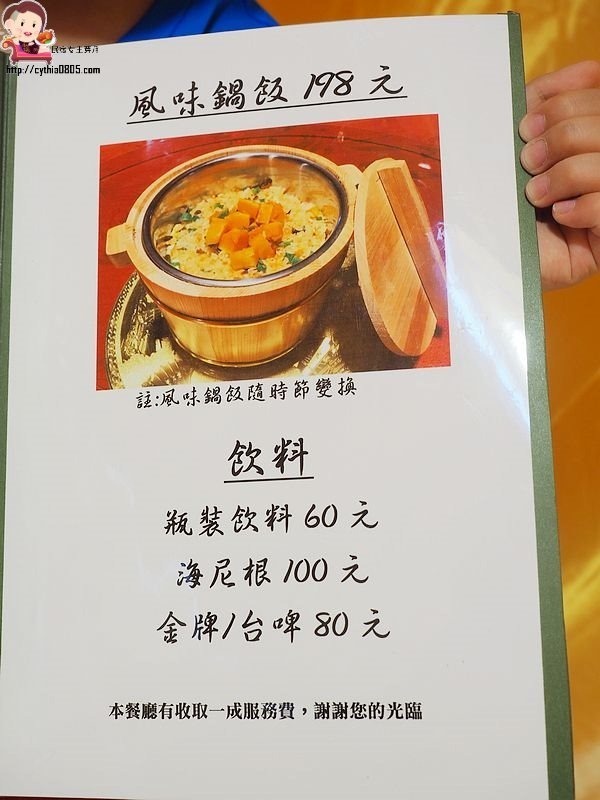 民宿女王芽月
http://cythia0805.com
風味鍋飯 198 元
註:風味鍋飯隨時節變換
飲料
瓶裝飲料 60 元
海尼根 100 元
金牌/台啤 80 元
本餐廳有收取一成服務費，謝謝您的光臨